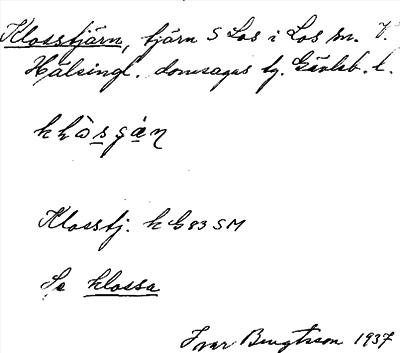 Klosstjärn, tjärn S Los i Los sn. V.
Hälsingl. domsagas tg. Gävleb. l.
Klosstj. k G 83 SM
Se klossa
Ivar Bengtsson 1937